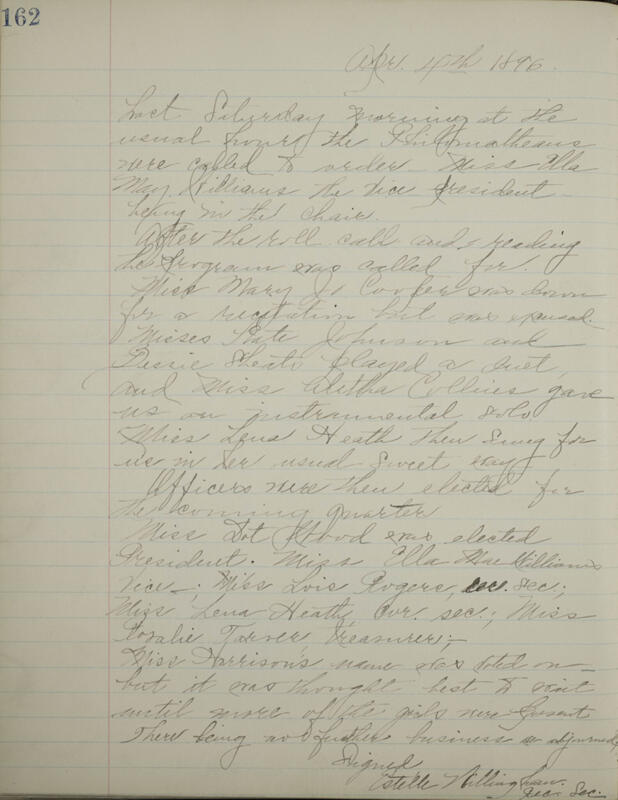 162
Apr. 4th 1896.
Last Saturday morning at the
usual hour the Philomatheans
were called to order - Miss Ella
May Williams the Vice President -
being in the chair.
After the roll call and reading
the program was called for.
Miss Mary Jo Cooper was down
for a recitation but was excused.
Misses Kate Johnson and
Dessie Sheats played a duet,
and Miss Aletha Collins gave
us an instrumental solo
Miss Lena Heath then sung for
us in her usual sweet way
Officers were then elected for
the coming quarter
Miss Dot Hood was elected
President. Miss Ella Mae Williams
Vice -; Miss Lois Rogers, rec. sec.;
Miss Lena Heath, Cor. sec.; Miss
Tarver treasurer;-
Miss Harrison's name was voted on -
but it was thought best to wait
until more of the girls were present
There being no further business adjourned,
Signed
Estelle
Rec. Sec.